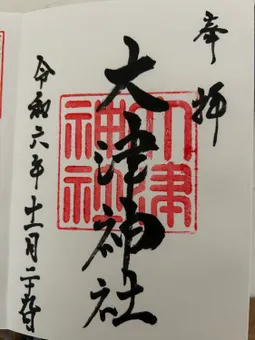 奉拝
大津神社
大津
神社
令和六年十二月二十九日